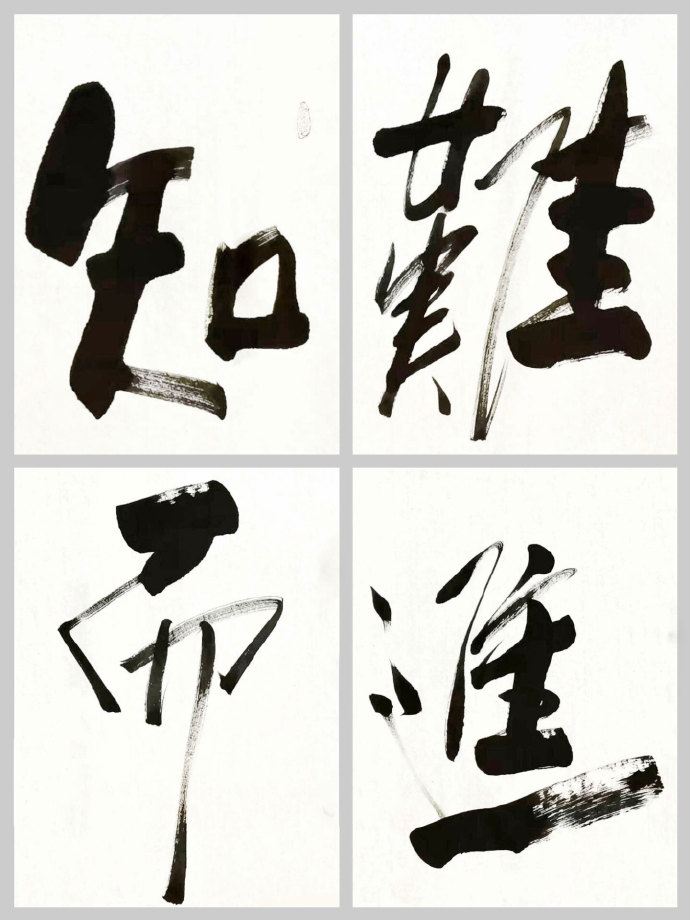 知難
而進